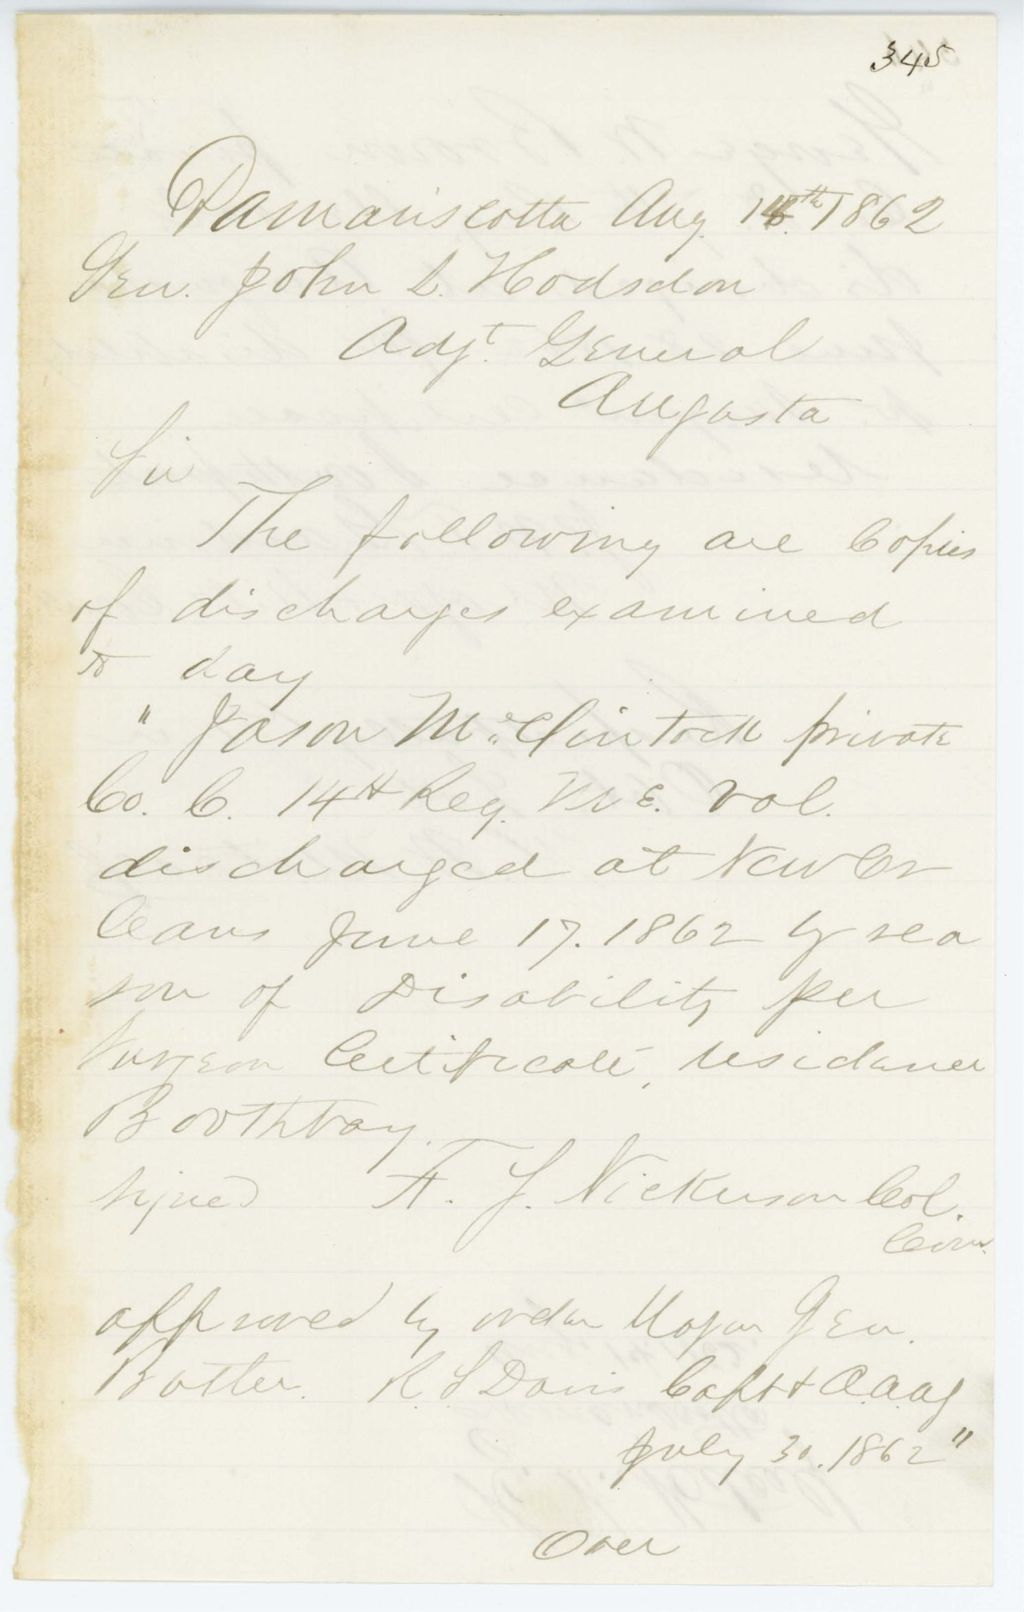 345
Damariscotta Aug 18th 1862
Gen. John L. Hodsdon
Adjt. General
Augusta
Sir
The following are Copies
of discharges examined
to day
" Jason McClintock private
Co. C. 14th Reg. Me. Vol.
discharged at New Or
leans June 17. 1862 by rea
son of Disability per
Surgeon Certificate, residence
Boothbay.
signed F. S. Nickerson Col.
Com.
approved by order Major Gen.
Butler. R. S Davis Capt & A.A.A.G
July 30. 1862 "
Over